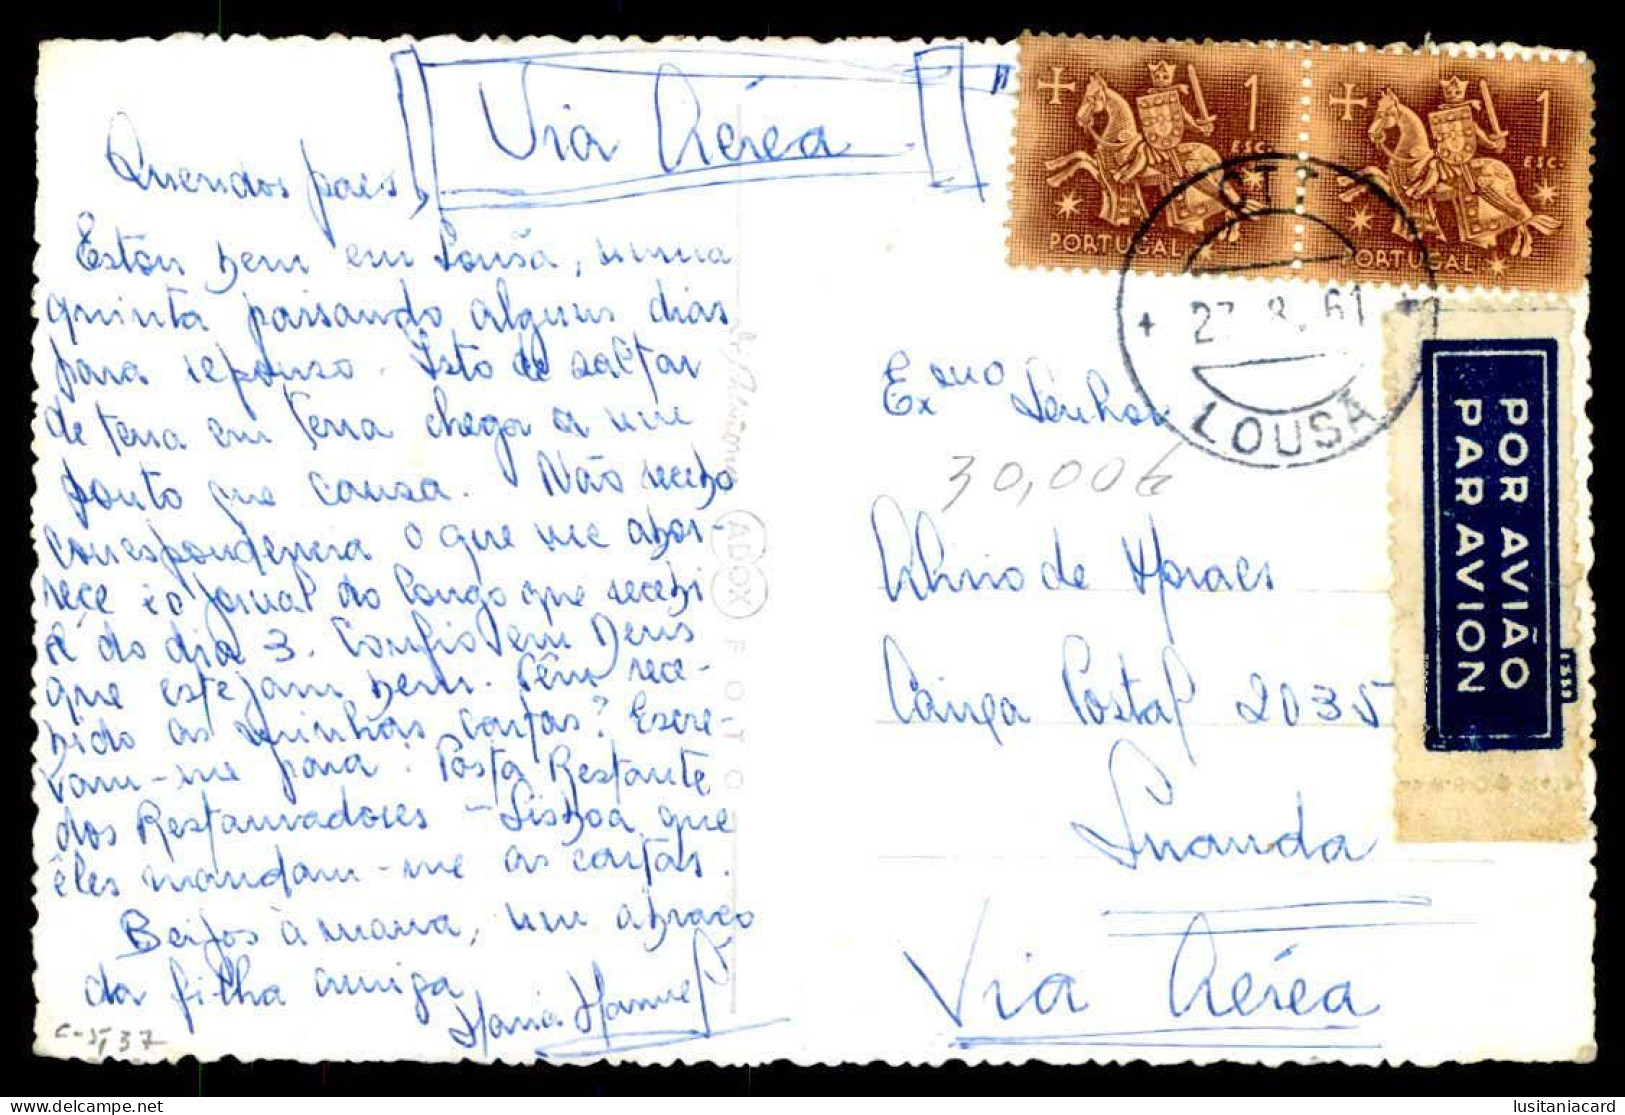 Via Aérea
Queridos pais,
Estou bem em Lousã, numa
quinta passando alguns dias
para repouso. Isto de saltar
de terra em terra chega a um
ponto que cansa. Não recebo
correspondencia o que me abor-
rece e o jornal do Congo que recebi
é do dia 3. Confio em Deus
que estejam bem. Têm rece-
bido as minhas cartas? Escre-
vam-me para: Posta Restante
dos Restauradores - Lisboa que
êles mandam-me as cartas.
Beijos à mana, um abraço
da filha amiga
Maria Manuel
C-5,37
ADOX FOTO
1
ESC.
PORTUGAL
1
ESC.
PORTUGAL
CTT
27.8.61
LOUSÃ
POR AVIÃO
PAR AVION
Exmo Senhor
30,00€
Albino de Moraes
Caixa Postal 2035
Luanda
Via Aérea
lusitaniacard